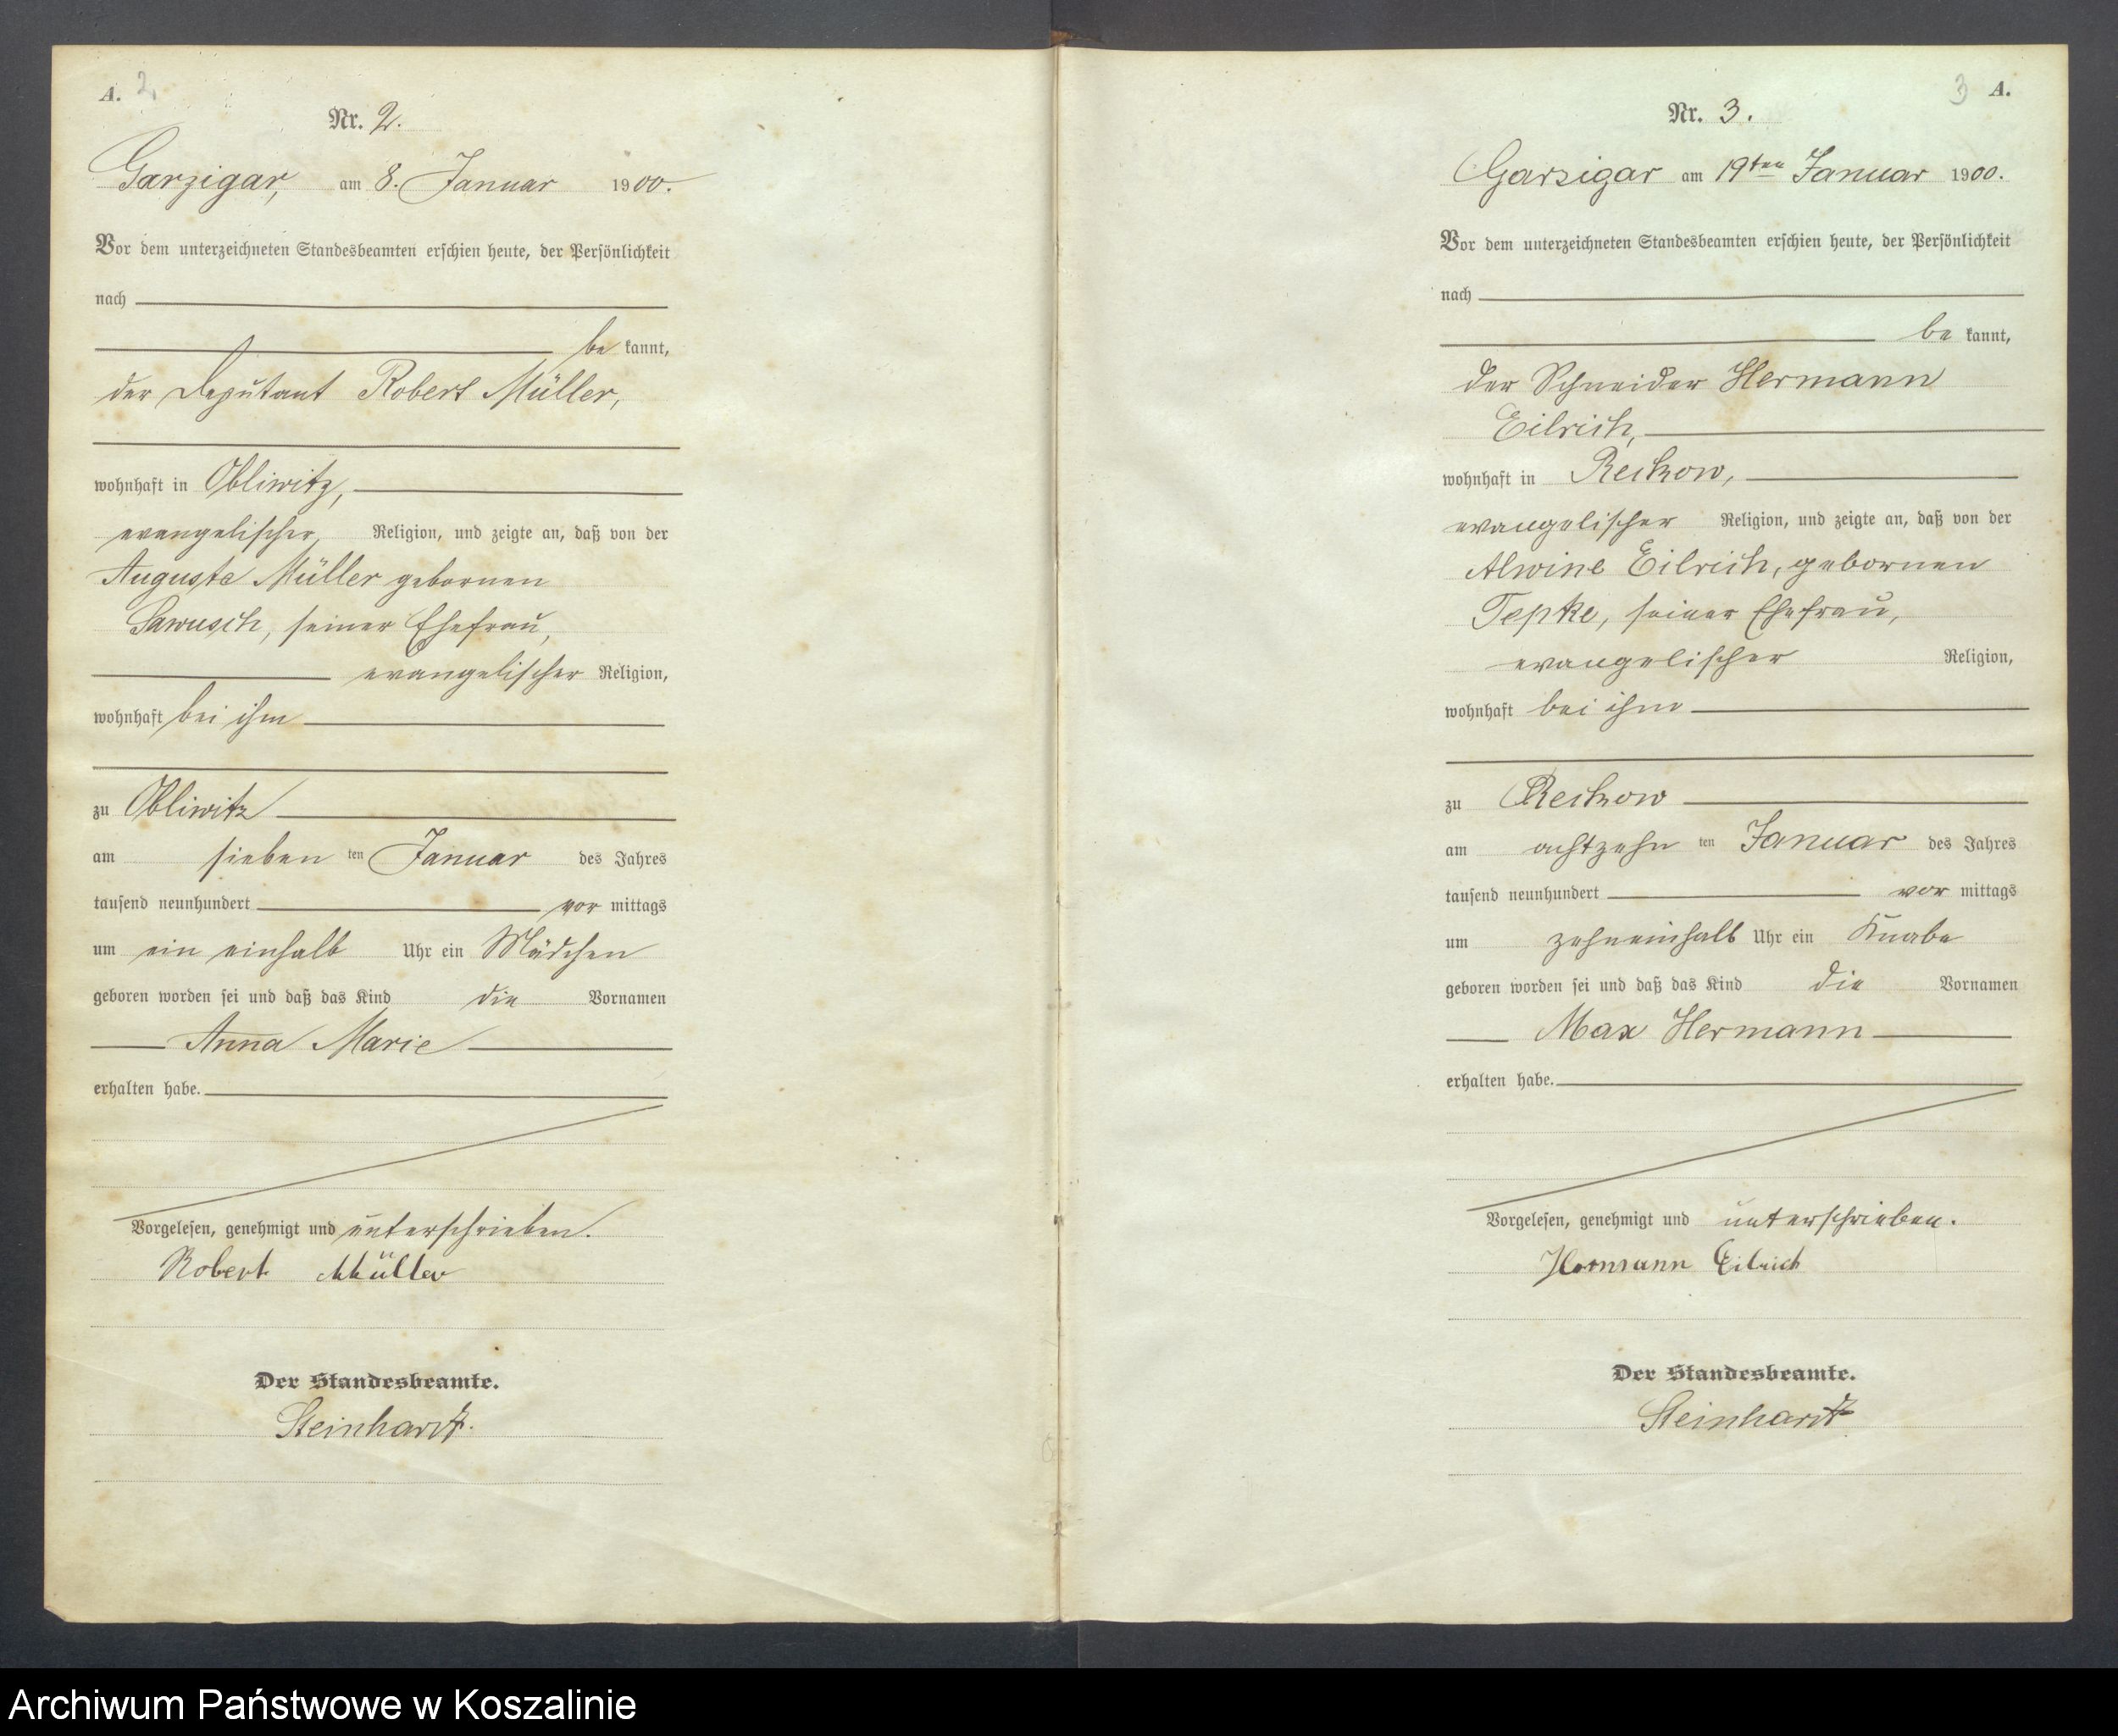 A. 2.
Nr. 2.
Garzigar, am 8. Januar 1900.
Vor dem unterzeichneten Standesbeamten erschien heute, der Persönlichkeit
nach
be kannt,
der Deputant Robert Müller,
wohnhaft in Obliwitz,
evangelischer, Religion, und zeigte an, daß von der
Auguste Müller gebornen
Sawusch, seiner Ehefrau,
evangelischer Religion,
wohnhaft bei ihm
zu Obliwitz
am sieben ten Januar des Jahres
tausend neunhundert vor mittags
um ein einhalb Uhr ein Mädchen
geboren worden sei und daß das Kind die Vornamen
Anna Marie
erhalten habe.
Vorgelesen, genehmigt und unterschrieben.
Robert Müller
Der Standesbeamte.
Steinhardt.
3 A.
Nr. 3.
Garzigar am 19ten Januar 1900.
Vor dem unterzeichneten Standesbeamten erschien heute, der Persönlichkeit
nach
be kannt,
der Schneider Hermann
Eilrich,
wohnhaft in Reckow,
evangelischer Religion, und zeigte an, daß von der
Alwine Eilrich, gebornen
Tepke, seiner Ehefrau,
evangelischer Religion,
wohnhaft bei ihm
zu Reckow
am achtzehn ten Januar des Jahres
tausend neunhundert vor mittags
um zehneinhalb Uhr ein Knabe
geboren worden sei und daß das Kind die Vornamen
Max Hermann
erhalten habe.
Vorgelesen, genehmigt und unterschrieben.
Hermann Eilrich
Der Standesbeamte.
Steinhardt
Archiwum Państwowe w Koszalinie